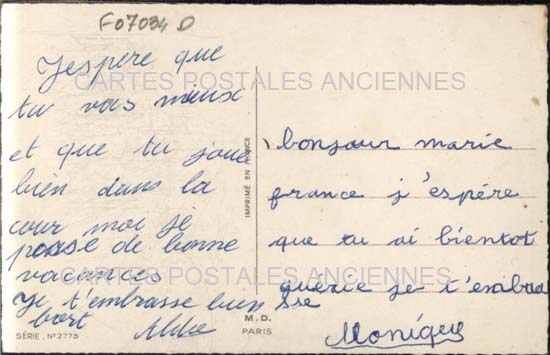 F07034 D
J'espère que
tu vas mieux
et que tu joue
bien dans la
cour moi je
passe de bonne
vacances
Je t'embrasse bien
bort
SÉRIE. N° 2775
CARTES POSTALES ANCIENNES
CARTES POSTALES ANCIENNES
IMPRIMÉ EN FRANCE
M.D.
PARIS
bonjour marie
france j'espére
que tu ai bientot
guérie je t'embra
sse